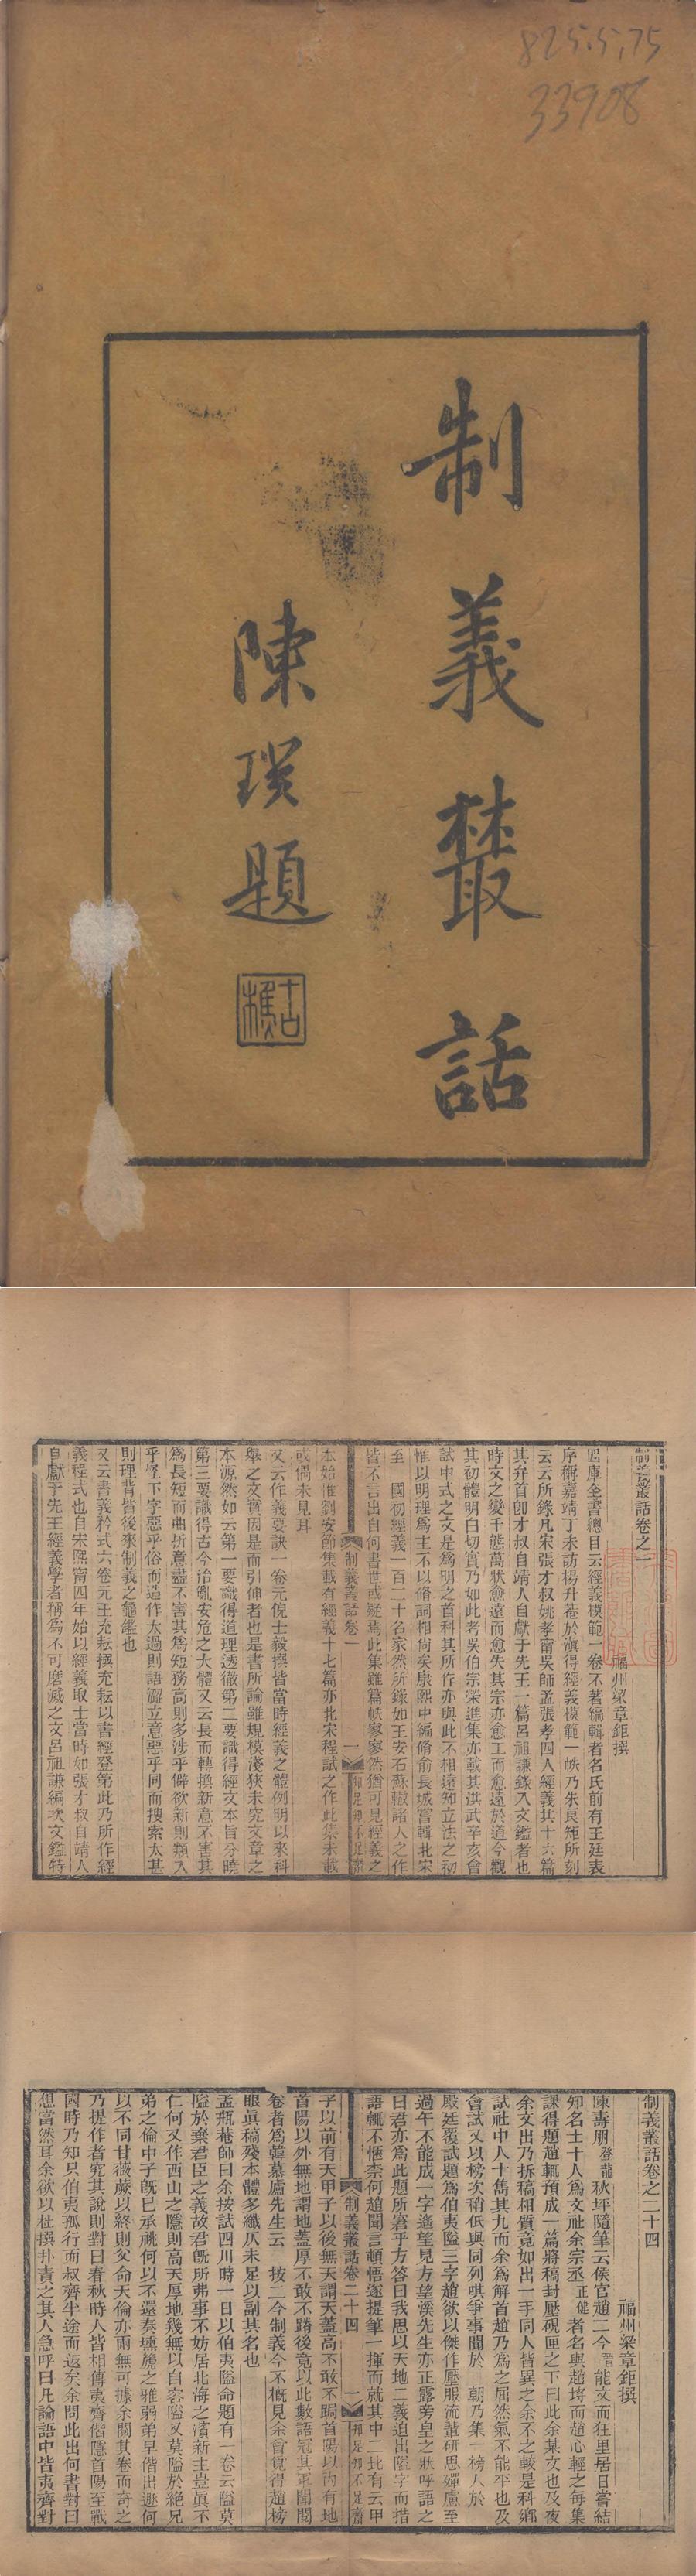 825.5,75
33908
制義叢話
陳瑸題
古樵
制義叢話卷之一
福州梁章鉅撰
四庫全書總目云經義模範一卷不著編輯者名氏前有王廷表
序稱嘉靖丁未訪楊升菴於滇得經義模範一帙乃朱良矩所刻
云云所錄凡宋張才叔姚孝甯吳師孟張孝四人經義共十六篇
其弁首卽才叔自靖人自獻于先王一篇呂祖謙錄入文鑑者也
時文之變千態萬狀愈遠而愈失其宗亦愈工而愈遠於道今觀
其初體明白切實乃如此考吳伯宗榮進集亦載其洪武辛亥會
試中式之文是爲明之首科其所作亦與此不相遠知立法之初
惟以明理爲主不以脩詞相尙矣康熙中編脩俞長城嘗輯北宋
至　國初經義一百二十名家然所錄如王安石蘇轍諸人之作
皆不言出自何書世或疑焉此集雖篇帙寥寥然猶可見經義之
制義叢話卷一
一
知足知不足齋
本始惟劉安節集載有經義十七篇亦北宋程試之作此集未載
或偶未見耳
又云作義要訣一卷元倪士毅撰皆當時經義之體例明以來科
舉之文實因是而引伸者也是書所論雖規模淺狹未究文章之
本源然如云第一要識得道理透徹第二要識得經文本旨分曉
第三要識得古今治亂安危之大體又云長而轉換新意不害其
爲長短而曲折意盡不害其爲短務高則多涉乎僻欲新則類入
乎怪下字惡乎俗而造作太過則語澀立意惡乎同而搜索太甚
則理背皆後來制義之龜鑑也
又云書義矜式六卷元王充耘撰充耘以書經登第此乃所作經
義程式也自宋熙甯四年始以經義取士當時如張才叔自靖人
自獻于先王經義學者稱爲不可磨滅之文呂祖謙編次文鑑特
制義叢話卷之二十四
福州梁章鉅撰
陳壽朋登龍秋坪隨筆云侯官趙二今能文而狂里居日嘗結
知名士十人爲文社余宗丞正健者名與趙埓而趙心輕之每集
課得題趙輒預成一篇將稿封壓硯匣之下曰此余某文也及夜
余文出乃拆稿相質竟如出一手同人皆異之余不之較是科鄉
試社中人十雋其九而余爲解首趙乃爲之屈然氣不能平也及
會試又以榜次稍低與同列爭事聞於　朝乃集一榜人於
殿廷覆試題爲伯夷隘三字趙欲以傑作壓服流輩研思殫慮至
過午不能成一字適望見方望溪先生亦正露旁皇之狀呼語之
曰君亦爲此題所窘乎方答曰我思以天地二義迫出隘字而措
語輒不愜柰何趙聞言頓悟遂提筆一揮而就其中二比有云甲
制義叢話卷二十四
一
知足知不足齋
子以前有天甲子以後無天謂天蓋高不敢不跼首陽以內有地
首陽以外無地謂地蓋厚不敢不蹐後竟以此數語冠其軍聞閱
卷者爲韓慕廬先生云　按二今制義今不槪見余曾覓得趙榜
眼眞稿殘本體多纖仄未足以副其名也
孟瓶菴師曰余按試四川時一日以伯夷隘命題有一卷云隘莫
隘於棄君臣之義故君旣所弗事不妨居北海之濱新主豈眞不
仁何又作西山之隱則高天厚地幾無以自容隘又莫隘於絕兄
弟之倫中子旣已承祧何以不還奏壎篪之雅弱弟早偕出遯何
以不同甘薇蕨以終則父命天倫亦兩無可據余閱其卷而奇之
乃提作者究其說則對曰春秋時人皆相傳夷齊偕隱首陽至戰
國時乃知只伯夷孤行而叔齊半途而返矣余問此出何書對曰
想當然耳余欲以杜撰扑責之其人急呼曰凡論語中皆夷齊對